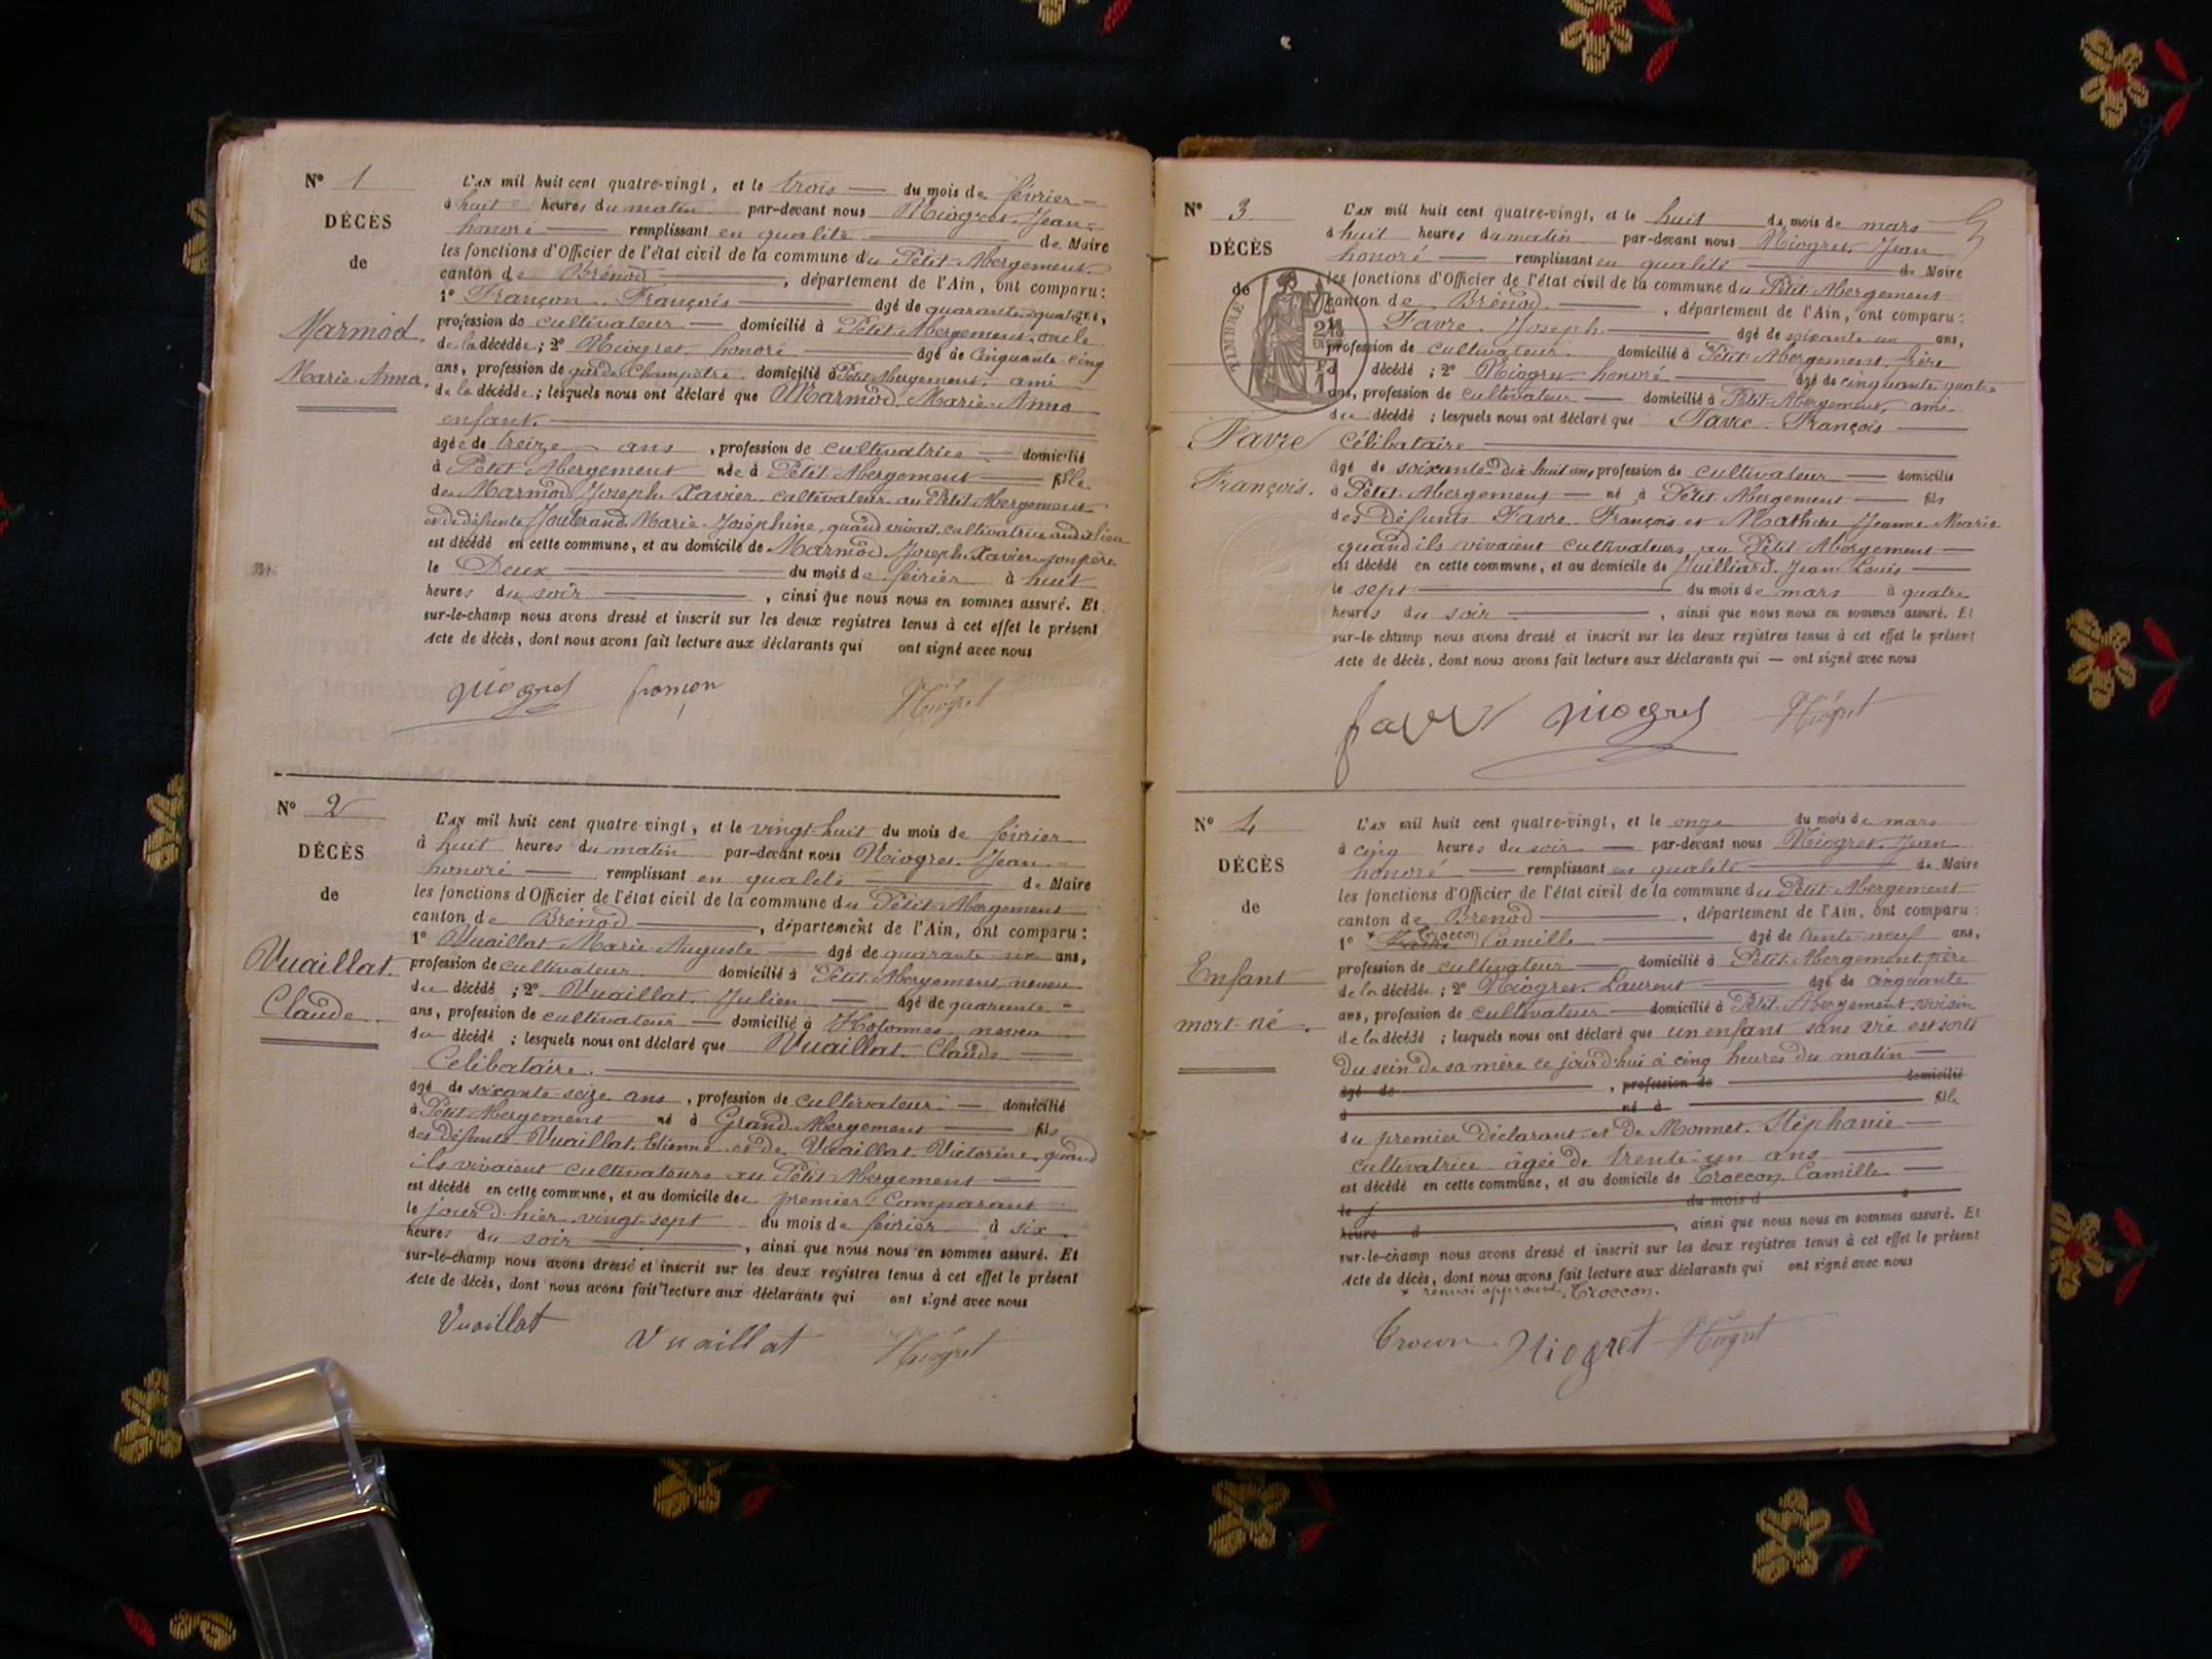 N° 1
DÉCÈS
de
Marmod
Marie Anna.
L'AN mil huit cent quatre-vingt, et le trois du mois de février
à huit heures du matin par-devant nous Niogret Jean
honoré remplissant en qualité de Maire
les fonctions d'Officier de l'état civil de la commune du Petit Abergement
canton de Brénod, département de l'Ain, ont comparu:
1° Françon François âgé de quarante quatre,
profession de cultivateur domicilié à Petit Abergement, oncle
de la décédée; 2° Niogret honoré âgé de cinquante cinq
ans, profession de garde champêtre domicilié à Petit Abergement, ami
de la décédée; lesquels nous ont déclaré que Marmod Marie Anna
enfant.
âgée de treize ans, profession de cultivatrice domicilié
à Petit Abergement née à Petit Abergement fille
de Marmod Joseph Xavier cultivateur au Petit Abergement
et de défunte Joutrand Marie Joséphine, quand vivait cultivatrice audit lieu
est décédé en cette commune, et au domicile de Marmod Joseph Xavier son père
le Deux du mois de février à huit
heures du soir, ainsi que nous nous en sommes assuré. Et
sur-le-champ nous avons dressé et inscrit sur les deux registres tenus à cet effet le présent
Acte de décès, dont nous avons fait lecture aux déclarants qui ont signé avec nous
Niogret françon Niogret
N° 2
DÉCÈS
de
Vuaillat
Claude.
L'AN mil huit cent quatre-vingt, et le vingt-huit du mois de février
à huit heures du matin par-devant nous Niogret Jean
honoré remplissant en qualité de Maire
les fonctions d'Officier de l'état civil de la commune du Petit Abergement
canton de Brénod, département de l'Ain, ont comparu:
1° Vuaillat Marie Auguste âgé de quarante six ans,
profession de cultivateur domicilié à Petit Abergement neveu
du décédé; 2° Vuaillat Julien âgé de quarante
ans, profession de cultivateur domicilié à Hotonnes neveu
du décédé; lesquels nous ont déclaré que Vuaillat Claude
Célibataire.
âgé de soixante seize ans, profession de cultivateur domicilié
à Petit Abergement né à Grand Abergement fils
des défunts Vuaillat Etienne et de Vuaillat Victorine, quand
ils vivaient cultivateurs au Petit Abergement
est décédé en cette commune, et au domicile du premier comparant
le jour d'hier vingt-sept du mois de février à six
heures du soir, ainsi que nous nous en sommes assuré. Et
sur-le-champ nous avons dressé et inscrit sur les deux registres tenus à cet effet le présent
Acte de décès, dont nous avons fait lecture aux déclarants qui ont signé avec nous
Vuaillat Vuaillat Niogret
N° 3
DÉCÈS
de
TIMBRE
Favre
François.
L'AN mil huit cent quatre-vingt, et le huit du mois de mars
à huit heures du matin par-devant nous Niogret Jean
honoré remplissant en qualité de Maire
les fonctions d'Officier de l'état civil de la commune du Petit Abergement
canton de Brénod, département de l'Ain, ont comparu:
Favre Joseph âgé de soixante un ans,
profession de cultivateur domicilié à Petit Abergement, frère
décédé; 2° Niogret honoré âgé de cinquante quatre
ans, profession de cultivateur domicilié à Petit Abergement, ami
du décédé; lesquels nous ont déclaré que Favre François
célibataire
âgé de soixante dix huit ans, profession de cultivateur domicilié
à Petit Abergement né à Petit Abergement fils
des défunts Favre François et Mathieu Jeanne Marie
quand ils vivaient cultivateurs au Petit Abergement
est décédé en cette commune, et au domicile de Juilliard Jean Louis
le sept du mois de mars à quatre
heures du soir, ainsi que nous nous en sommes assuré. Et
sur-le-champ nous avons dressé et inscrit sur les deux registres tenus à cet effet le présent
Acte de décès, dont nous avons fait lecture aux déclarants qui — ont signé avec nous
favre Niogret Niogret
N° 4
DÉCÈS
de
Enfant
mort-né.
L'AN mil huit cent quatre-vingt, et le onze du mois de mars
à cinq heures du soir par-devant nous Niogret Jean
honoré remplissant en qualité de Maire
les fonctions d'Officier de l'état civil de la commune du Petit Abergement
canton de Brénod, département de l'Ain, ont comparu:
1° * Troccon Camille âgé de trente neuf ans,
profession de cultivateur domicilié à Petit Abergement père
de la décédée; 2° Niogret Laurent âgé de cinquante
ans, profession de cultivateur domicilié à Petit Abergement voisin
de la décédé; lesquels nous ont déclaré que un enfant sans vie est sorti
du sein de sa mère ce jour d'hui à cinq heures du matin
âgé de, profession de domicilié
à né à fille
du premier déclarant et de Monnet Stéphanie
cultivatrice âgée de trente-un ans
est décédé en cette commune, et au domicile de Troccon Camille
le j du mois d à
heure d, ainsi que nous nous en sommes assuré. Et
sur-le-champ nous avons dressé et inscrit sur les deux registres tenus à cet effet le présent
Acte de décès, dont nous avons fait lecture aux déclarants qui ont signé avec nous
* renvoi approuvé, Troccon.
Troccon Niogret Niogret